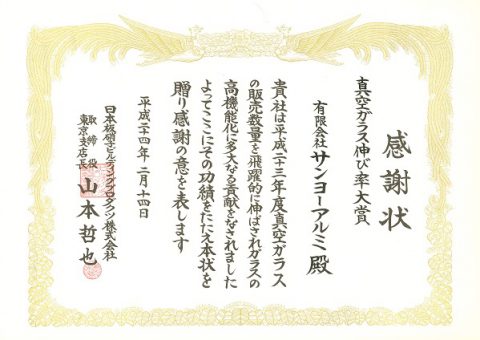 感謝状
真空ガラス伸び率大賞
有限会社サンヨーアルミ殿
貴社は平成二十三年度真空ガラス
の販売数量を飛躍的に伸ばされガラスの
高機能化に多大なる貢献をなされました
よってここにその功績をたたえ本状を
贈り感謝の意を表します
平成二十四年二月十四日
日本板硝子ビルディングプロダクツ株式会社
取締役
東京支店長
山本哲也